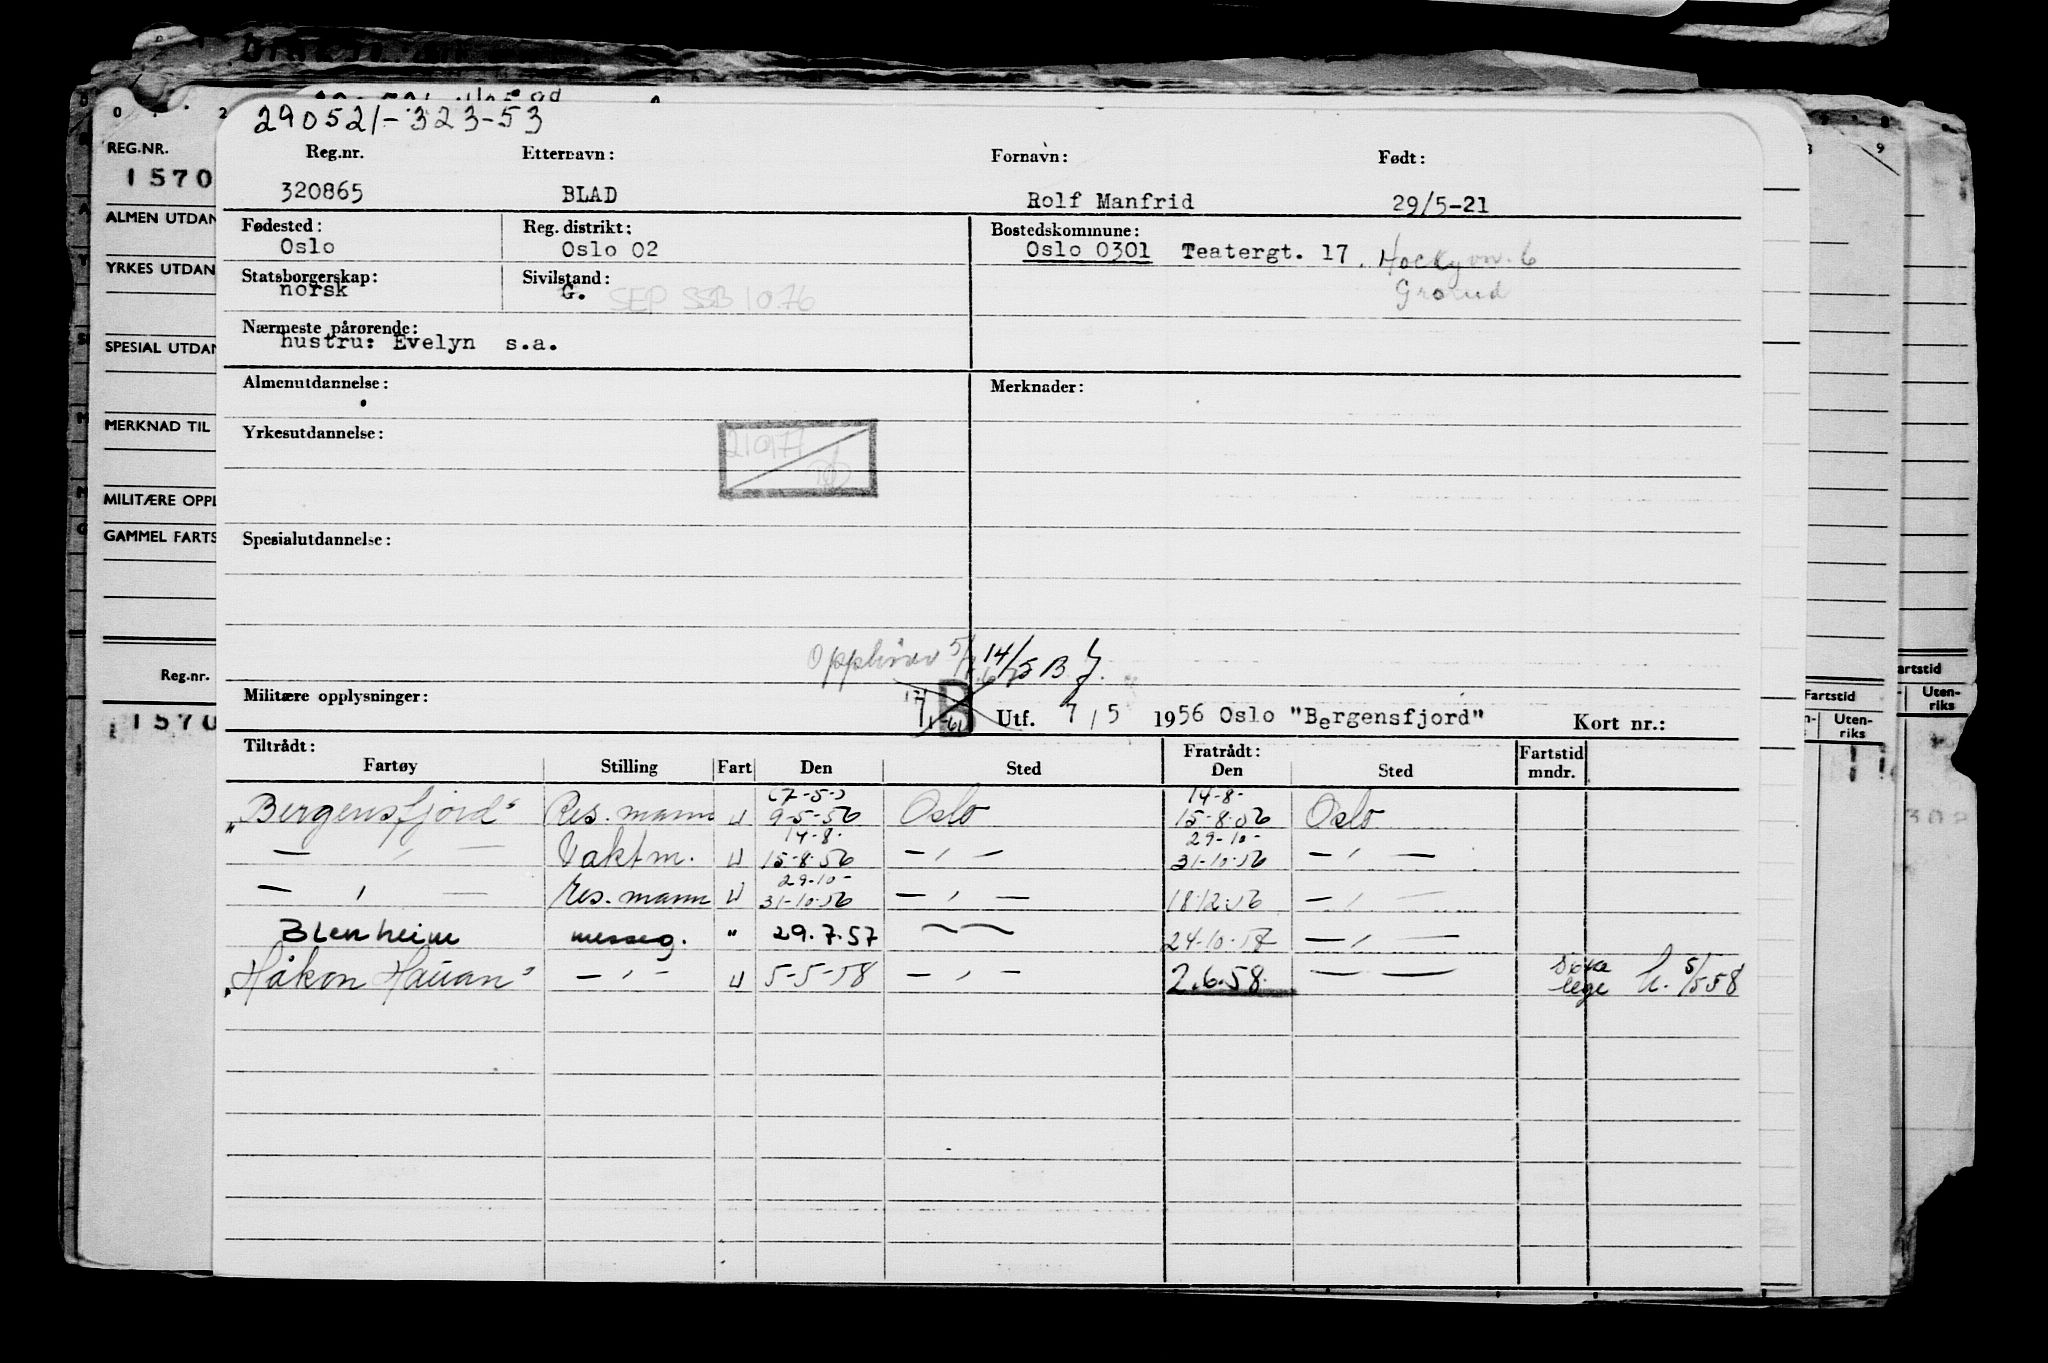 290521-323-53
Reg.nr. Etternavn: Fornavn: Født:
320865 BLAD Rolf Manfrid 29/5-21
Fødested: Reg. distrikt: Bostedskommune:
Oslo Oslo 02 Oslo 0301 Teatergt. 17, Hockyvn. 6
Grorud
Statsborgerskap: Sivilstand:
norsk G. SEP SSB 1076
Nærmeste pårørende:
hustru: Evelyn s.a.
Almenutdannelse: Merknader:
Yrkesutdannelse:
210977
Spesialutdannelse:
Opphører 14/5 B.
Militære opplysninger: B Utf. 7/5 1956 Oslo "Bergensfjord" Kort nr.:
Tiltrådt: Fratrådt: Fartstid
Fartøy Stilling Fart Den Sted Den Sted mndr.
(7-5-) 14-8-
"Bergensfjord" Res. mann U 9-5-56 Oslo 15-8-56 Oslo
14-8- 29-10-
— , — Vaktm. U 15-8-56 — , — 31-10-56 — , —
29-10-
— , — Res. mann U 31-10-56 — , — 18-12-56 — , —
Blenheim messeg. " 29.7.57 24-10-57 — , —
"Håkon Hauan" — , — U 5-5-58 — , — 2.6.58. — — lege 5/5 58
REG.NR.
1570
ALMEN UTDAN
YRKES UTDAN
SPESIAL UTDAN
MERKNAD TIL
MILITÆRE OPPL
GAMMEL FARTS
Reg.nr.
1570
Fartstid
Uten-
riks
artstid
Uten-
riks